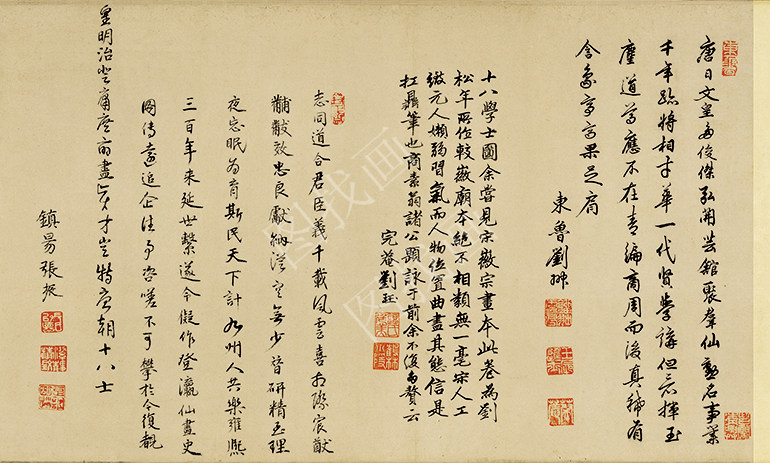 唐日文皇多俊傑弘開芸館聚羣仙勳名事業
千年跡將相才華一代賢學講但忘揮玉
麈道尊應不在青編商周而後真稀有
含象亭高果足肩
東魯劉珝
十八學士圖余嘗見宗徽宗畫本此卷為劉
松年所位較徽廟本絕不相類無一毫宗人工
緻元人嬾弱習氣而人物位置曲盡其態信是
扛鼎筆也商素菴諸公題詠于前余不復為贅云
完菴劉珏
志同道合君臣義千載風雲喜有際宸猷
黼黻效忠良獻納從容無少替研精至理
夜忘眠為育斯民天下計九州人共樂雍熙
三百年來延世繫遂令儗作登瀛仙畫史
圖傳遠追企往事咨嗟不可攀於今復覩
皇明治登庸庶前盡賢才豈特唐朝十八士
鎮昜張振
图找画